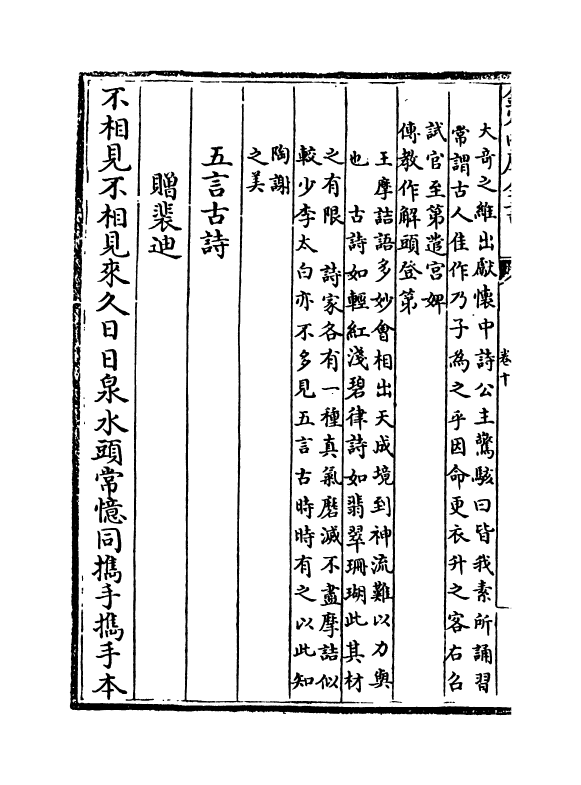 卷十
大奇之維出獻懷中詩公主驚駭曰皆我素所誦習
常謂古人佳作乃子為之乎因命更衣升之客右召
試官至第遣宮婢
傳教作解頭登第
王摩詰語多妙會相出天成境到神流難以力與
也　古詩如輕紅淺碧律詩如翡翠珊瑚此其材
之有限　詩家各有一種真氣磨滅不盡摩詰似
較少李太白亦不多見五言古時時有之以此知
陶謝
之美
五言古詩
贈裴迪
不相見不相見來久日日泉水頭常憶同㩗手㩗手本